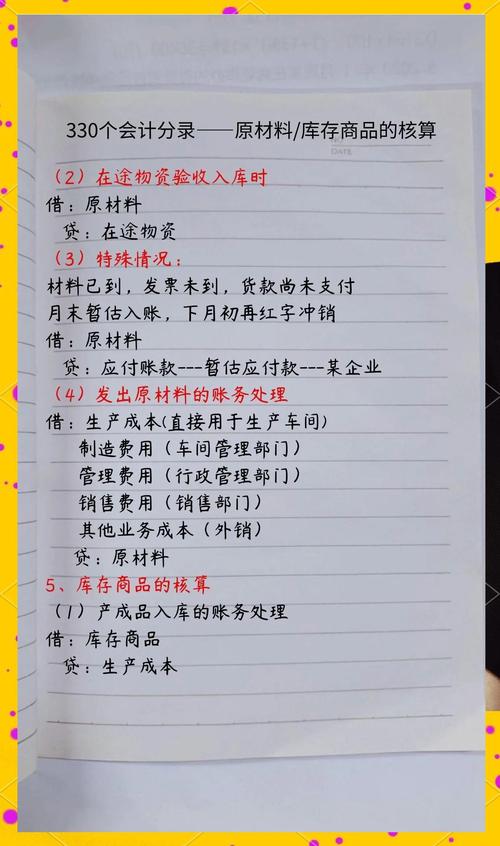 330个会计分录——原材料/库存商品的核算
DATE
(2)在途物资验收入库时
借:原材料
贷:在途物资
(3)特殊情况:
材料已到,发票未到,货款尚未支付
月末暂估入账,下月初再红字冲销
借:原材料
贷:应付账款---暂估应付款---某企业
(4)发出原材料的账务处理
借:生产成本(直接用于生产车间)
制造费用(车间管理部门)
管理费用(行政管理部门)
销售费用(销售部门)
其他业务成本(外销)
贷:原材料
5、库存商品的核算
(1)产成品入库的账务处理
借:库存商品
贷:生产成本